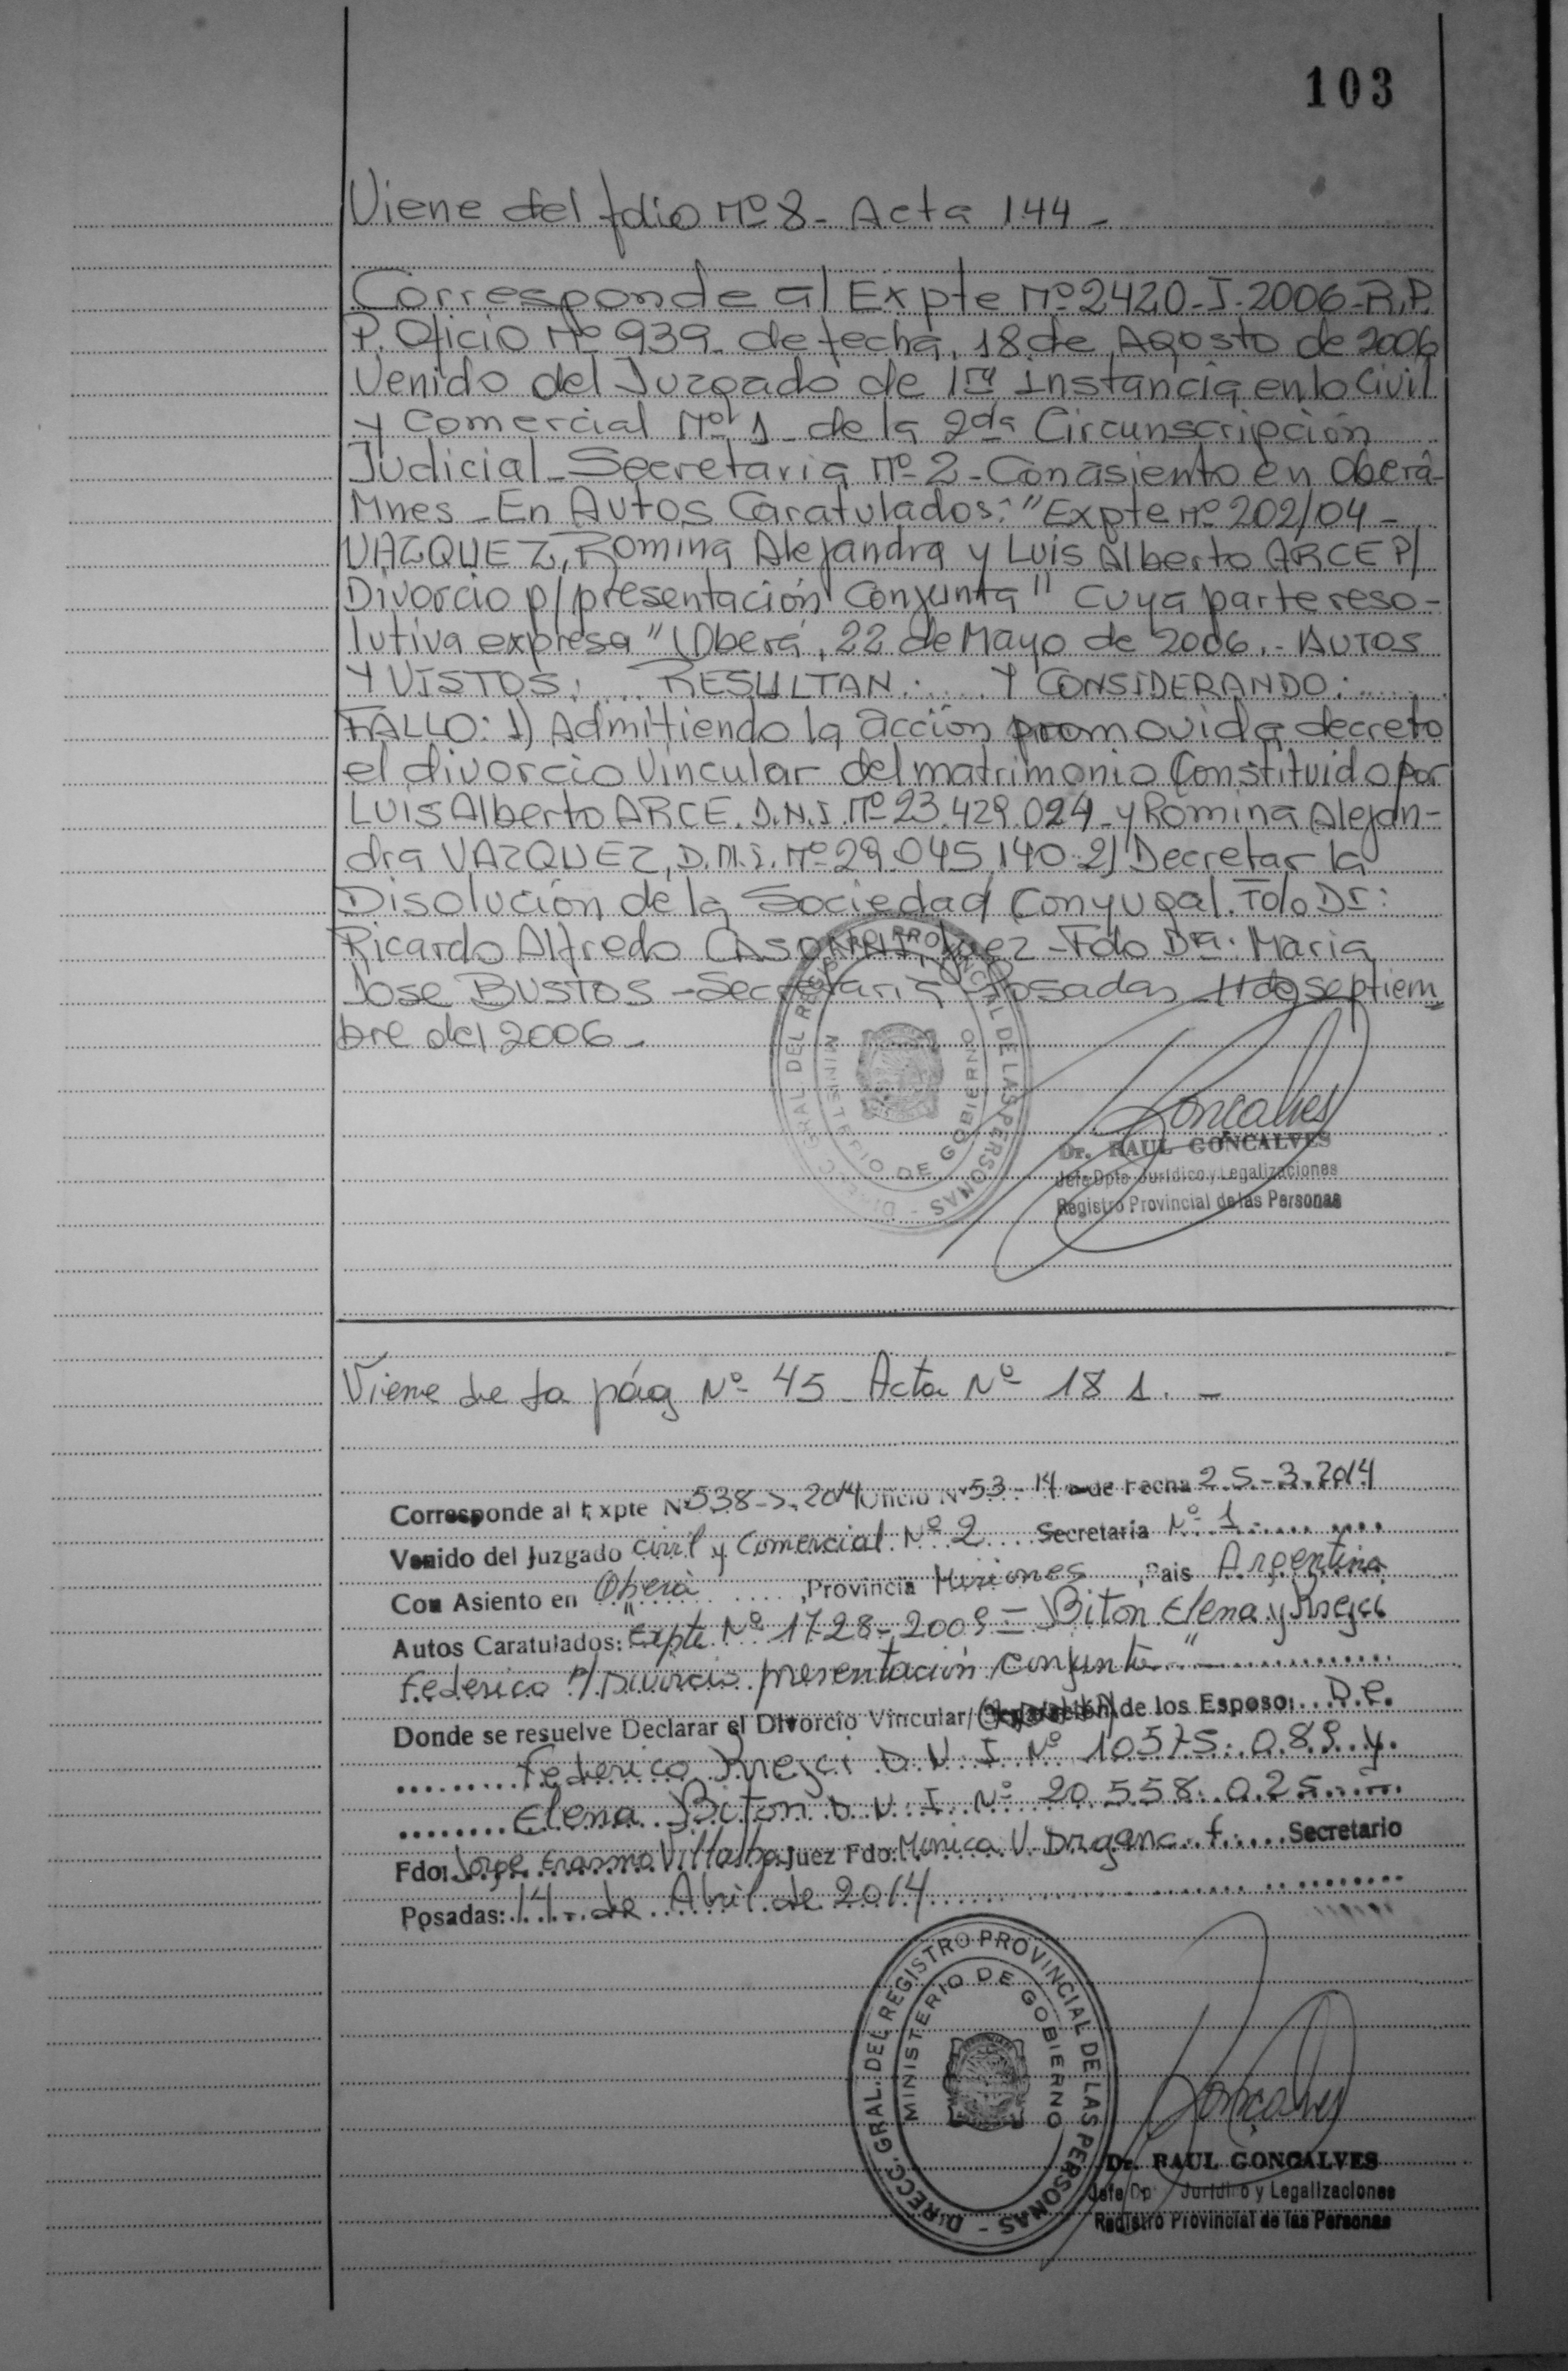 103
Viene del folio Nº 8 - Acta 144 -
Corresponde al Expte Nº 2420-I-2006-R.P.
P. Oficio Nº 939 - de fecha, 18 de Agosto de 2006
Venido del Juzgado de 1ra Instancia en lo Civil
y Comercial Nº 1 - de la 2da Circunscripción
Judicial - Secretaria Nº 2 - Con asiento en Oberá -
Mnes - En Autos Caratulados: "Expte Nº 202/04 -
VAZQUEZ, Romina Alejandra y Luis Alberto ARCE P/
Divorcio p/ presentación Conjunta" Cuya parte reso-
lutiva expresa "Oberá, 22 de Mayo de 2006.- AUTOS
Y VISTOS: .... RESULTAN: .... Y CONSIDERANDO: ....
FALLO: 1) Admitiendo la acción promovida decreto
el divorcio Vincular del matrimonio Constituido por
LUIS Alberto ARCE. D.N.I. Nº 23.429.024 - y Romina Alejan-
dra VAZQUEZ, D.N.I. Nº 29.045.140 - 2) Decretar la
Disolución de la Sociedad Conyugal. Fdo Dr:
Ricardo Alfredo CASONNI, Juez - Fdo Dra. Maria
Jose BUSTOS - Secretaria Posadas 11 de septiem
bre del 2006 -
DIRECC. GRAL. DEL REGISTRO PROVINCIAL DE LAS PERSONAS -
MINISTERIO DE GOBIERNO
Goncalves
Dr. RAUL GONCALVES
Jefe Dpto. Jurídico y Legalizaciones
Registro Provincial de las Personas
Viene de la pág Nº 45 - Acta Nº 181. -
Corresponde al Expte Nº 538-S-2014 Oficio Nº 53-14 de Fecha 25-3-2014
Venido del Juzgado Civil y Comercial Nº 2 Secretaría Nº 1
Con Asiento en Oberá, Provincia Misiones, Pais Argentina
Autos Caratulados: "Expte Nº 1728-2009 = Biton Elena y Krejci
Federico P/ Divorcio presentación conjunta" -
Donde se resuelve Declarar el Divorcio Vincular/ de los Esposo: De.
Federico Krejci D N I Nº 10575.089 y.
Elena Biton D N I Nº 20.558.025
Fdo: Jorge Erasmo Villalba Juez Fdo: Monica V. Drganc f. Secretario
Posadas: 14 de Abril de 2014
DIRECC. GRAL. DEL REGISTRO PROVINCIAL DE LAS PERSONAS -
MINISTERIO DE GOBIERNO
Goncalves
Dr. RAUL GONCALVES
Jefe Dp Jurídico y Legalizaciones
Registro Provincial de las Personas